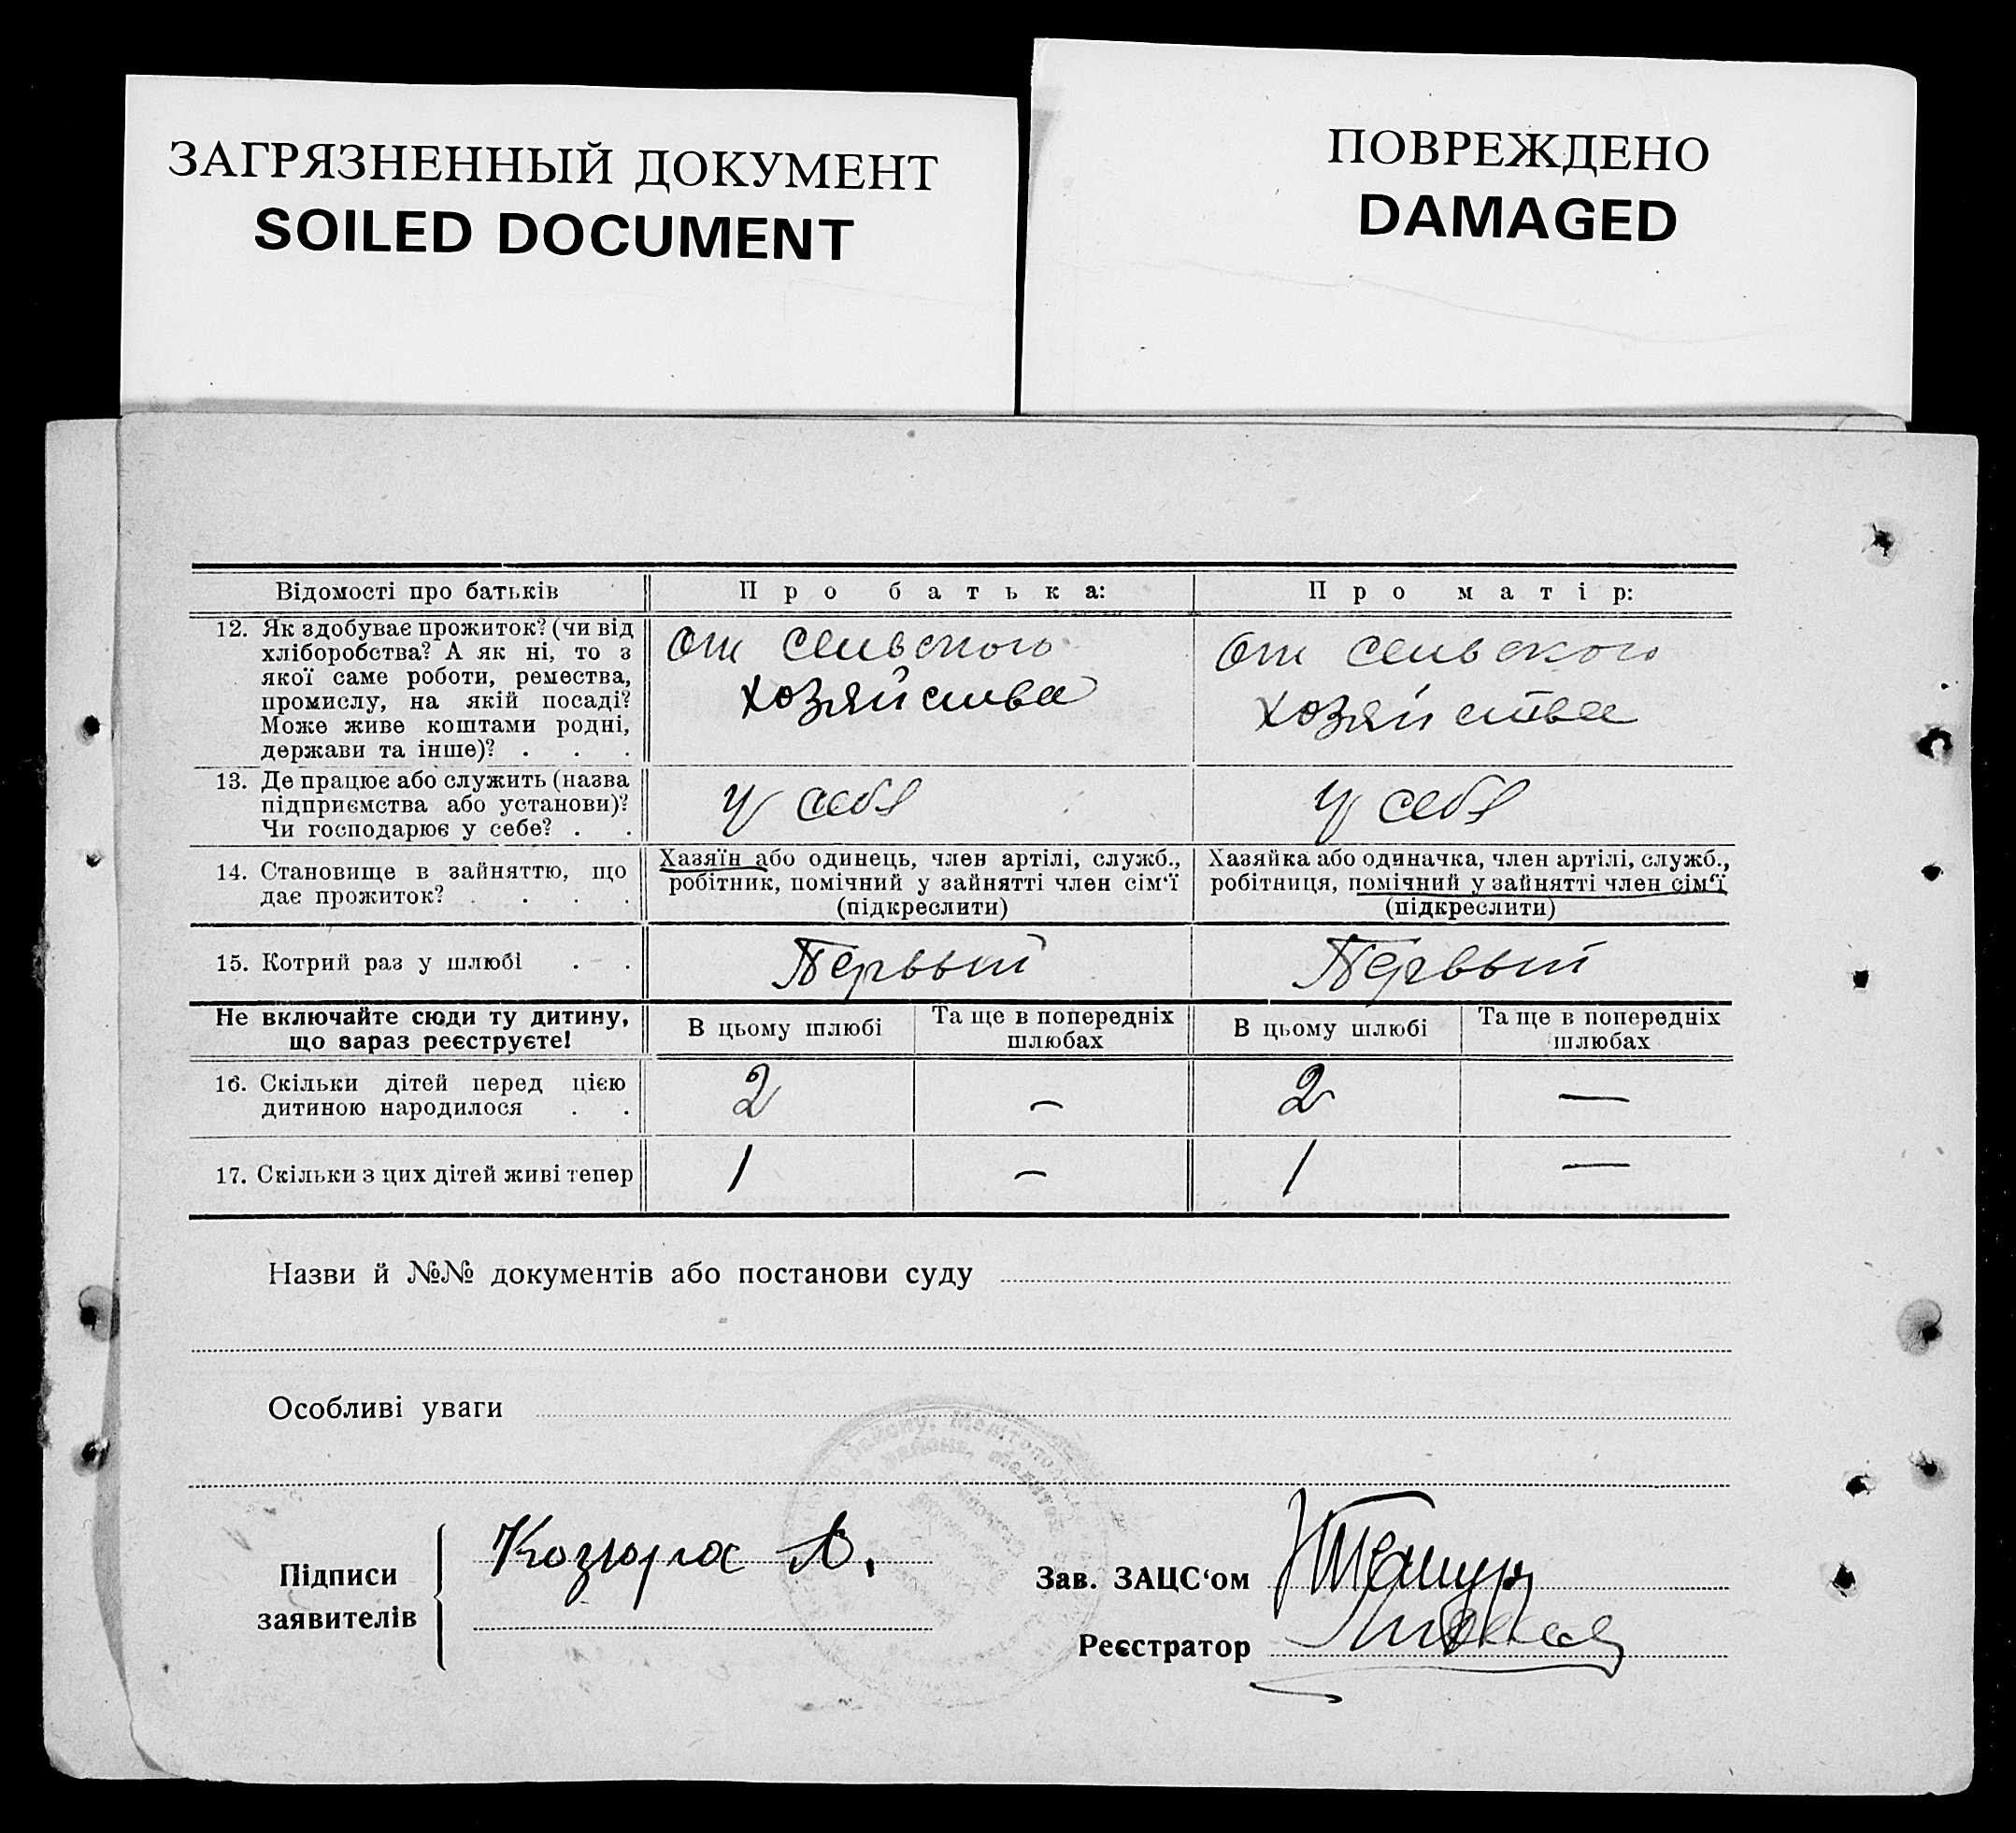 ЗАГРЯЗНЕННЫЙ ДОКУМЕНТ
SOILED DOCUMENT
ПОВРЕЖДЕНО
DAMAGED
Відомості про батьків
Про батька:
Про матір:
12. Як здобуває прожиток? (чи від
хліборобства? А як ні, то з
якої саме роботи, ремества,
промислу, на якій посаді?
Може живе коштами родні,
держави та інше)? . . .
От сельского
хозяйства
От сельского
хозяйства
13. Де працює або служить (назва
підприємства або установи)?
Чи господарює у себе? . .
У себя
У себя
14. Становище в зайняттю, що
дає прожиток? . . . .
Хазяїн або одинець, член артілі, служб.,
робітник, помічний у зайнятті член сім‘ї
(підкреслити)
Хазяйка або одиначка, член артілі, служб.,
робітниця, помічний у зайнятті член сім‘ї
(підкреслити)
15. Котрий раз у шлюбі . .
Первый
Первый
Не включайте сюди ту дитину,
що зараз реєструєте!
В цьому шлюбі
Та ще в попередніх
шлюбах
В цьому шлюбі
Та ще в попередніх
шлюбах
16. Скільки дітей перед цією
дитиною народилося . .
2
–
2
—
17. Скільки з цих дітей живі тепер
1
–
1
—
Назви й №№ документів або постанови суду
Особливі уваги
Підписи
заявителів
Козюра А.
Зав. ЗАЦС‘ом
Реєстратор